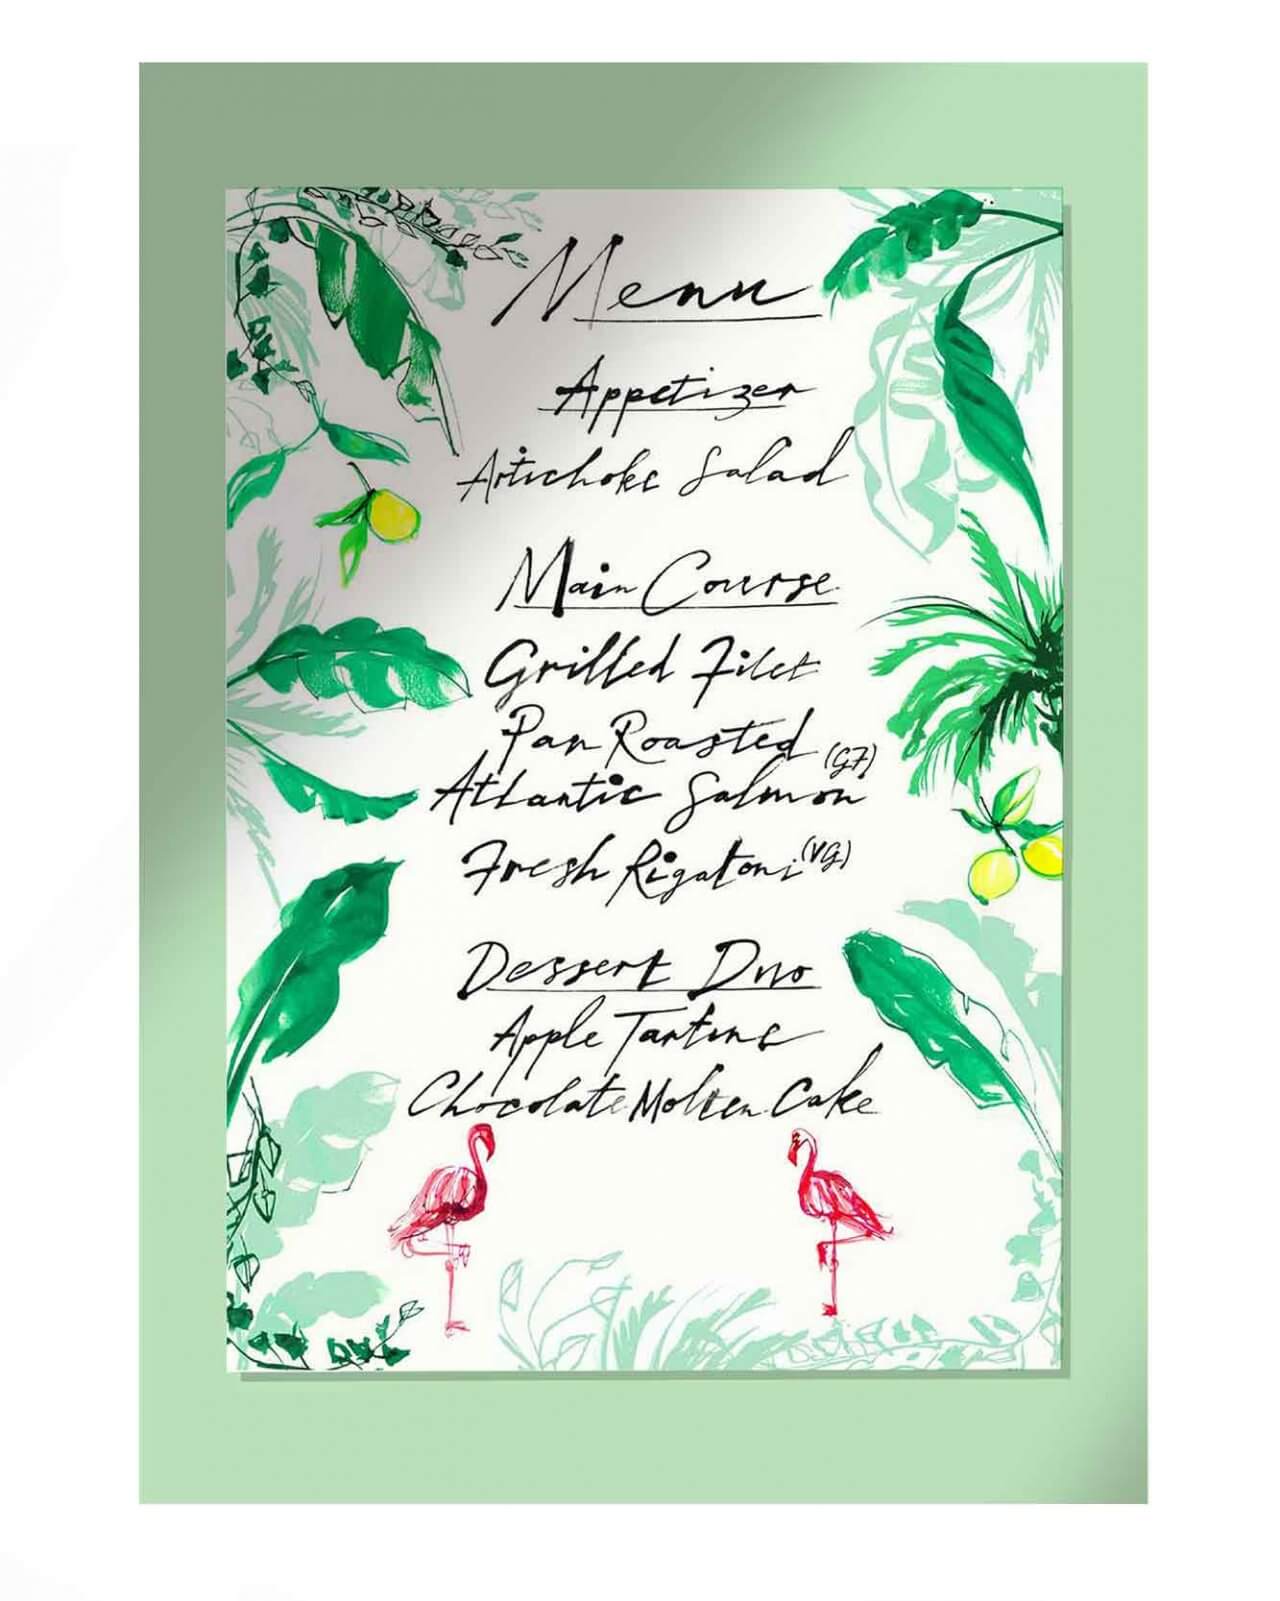 Menu
Appetizer
Artichoke Salad
Main Course
Grilled Filet
Pan Roasted
Atlantic Salmon (GF)
Fresh Rigatoni (VG)
Dessert Duo
Apple Tartine
Chocolate Molten Cake